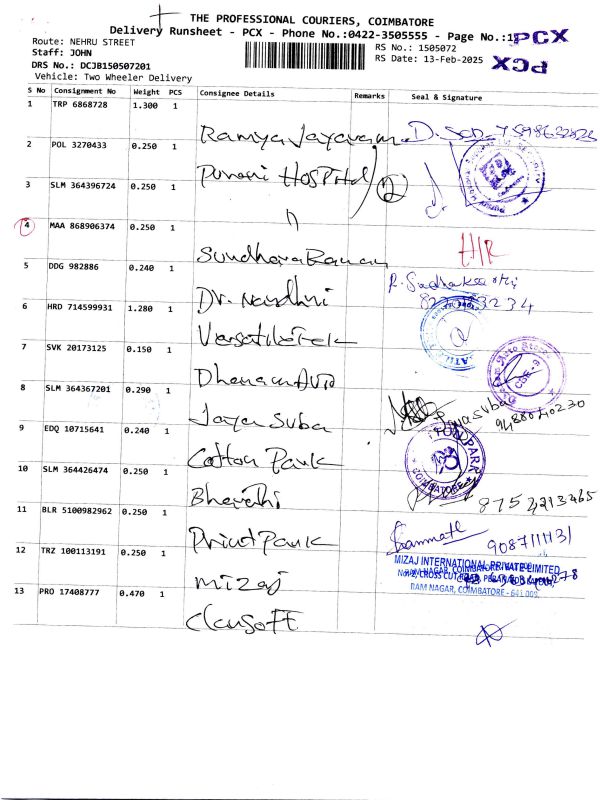 THE PROFESSIONAL COURIERS, COIMBATORE
Delivery Runsheet - PCX - Phone No.:0422-3505555 - Page No.:1
PCX
Route: NEHRU STREET
RS No.: 1505072
Staff: JOHN
RS Date: 13-Feb-2025
PCX
DRS No.: DCJB150507201
Vehicle: Two Wheeler Delivery
S No Consignment No Weight PCS Consignee Details Remarks Seal & Signature
1 TRP 6868728 1.300 1
Ramya Jayaram
2 POL 3270433 0.250 1
Purani Hospital 2
3 SLM 364396724 0.250 1
4 MAA 868906374 0.250 1
Sundhara Raman H/R
5 DDG 982886 0.240 1
Dr. Nandhini
6 HRD 714599931 1.280 1
7 SVK 20173125 0.150 1
Dhanam
8 SLM 364367201 0.290 1
Jaya Suba Jayasuba
9488040230
9 EDQ 10715641 0.240 1
Cotton Park
COIMBATORE
10 SLM 364426474 0.250 1
Bharathi
11 BLR 5100982962 0.250 1
Print Park
9087111131
12 TRZ 100113191 0.250 1
MIZAJ INTERNATIONAL PRIVATE LIMITED
mizaj
RAM NAGAR, COIMBATORE - 641 009.
13 PRO 17408777 0.470 1
Clausoft